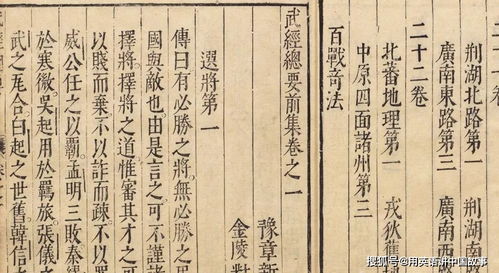 荊湖北路第一 荊湖南
廣南東路第三 廣南西
二十二卷
北蕃地理第一 戎狄舊
中原四面諸州第三
百戰奇法
武經總要前集卷之一
豫章新
金陵對
選將第一
傳曰有必勝之將無必勝之
國與敵也由是言之可不謹諸
擇將擇將之道惟審其才之可
以賤而棄不以詐而疎不以
威公任之以霸孟明三敗秦繆
於寒微吳起用於羈旅張儀
武之尫合白起之世舊韓信
搜狐号@用英语讲中国故事